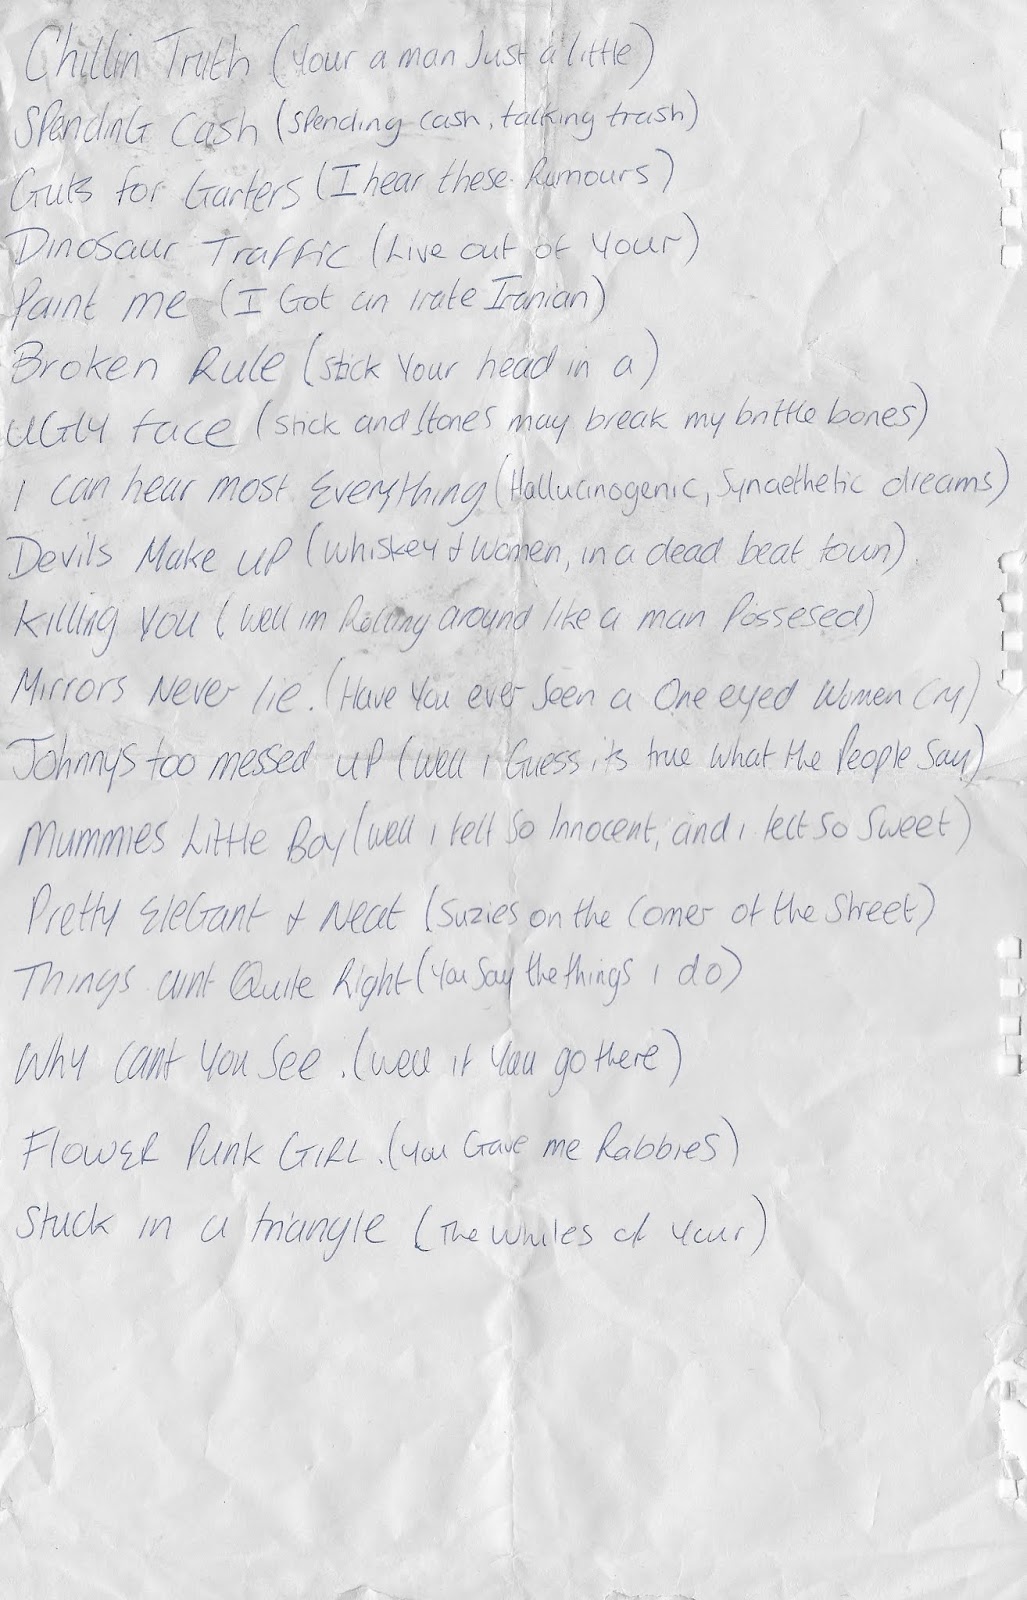 Chillin Truth (Your a man Just a little)
SPENDING CASH (Spending cash, talking trash)
Guts for Garters (I hear these Rumours)
Dinosaur Traffic (Live out of Your)
Paint me (I Got an irate Iranian)
Broken Rule (Stick Your head in a)
UGLY face (Stick and Stones may break my brittle bones)
I can hear most Everything (Hallucinogenic, Synaethetic dreams)
Devils Make up (Whiskey & Women, in a dead beat town)
Killing You (Well im Rolling around like a man Possesed)
Mirrors Never lie. (Have You ever Seen a One eyed Women Cry)
Johnnys too messed up (Well I Guess its true What the People Say)
Mummies Little Boy (Well I felt So Innocent, and I felt So Sweet)
Pretty EleGant & Neat (Suzies on the Corner of the Street)
Things aint Quite Right (You Say the things I do)
Why Cant You See. (Well if You go there)
FLOWER PUNK GIRL. (You Gave me Rabbies)
Stuck in a triangle (The Whiles of Your)